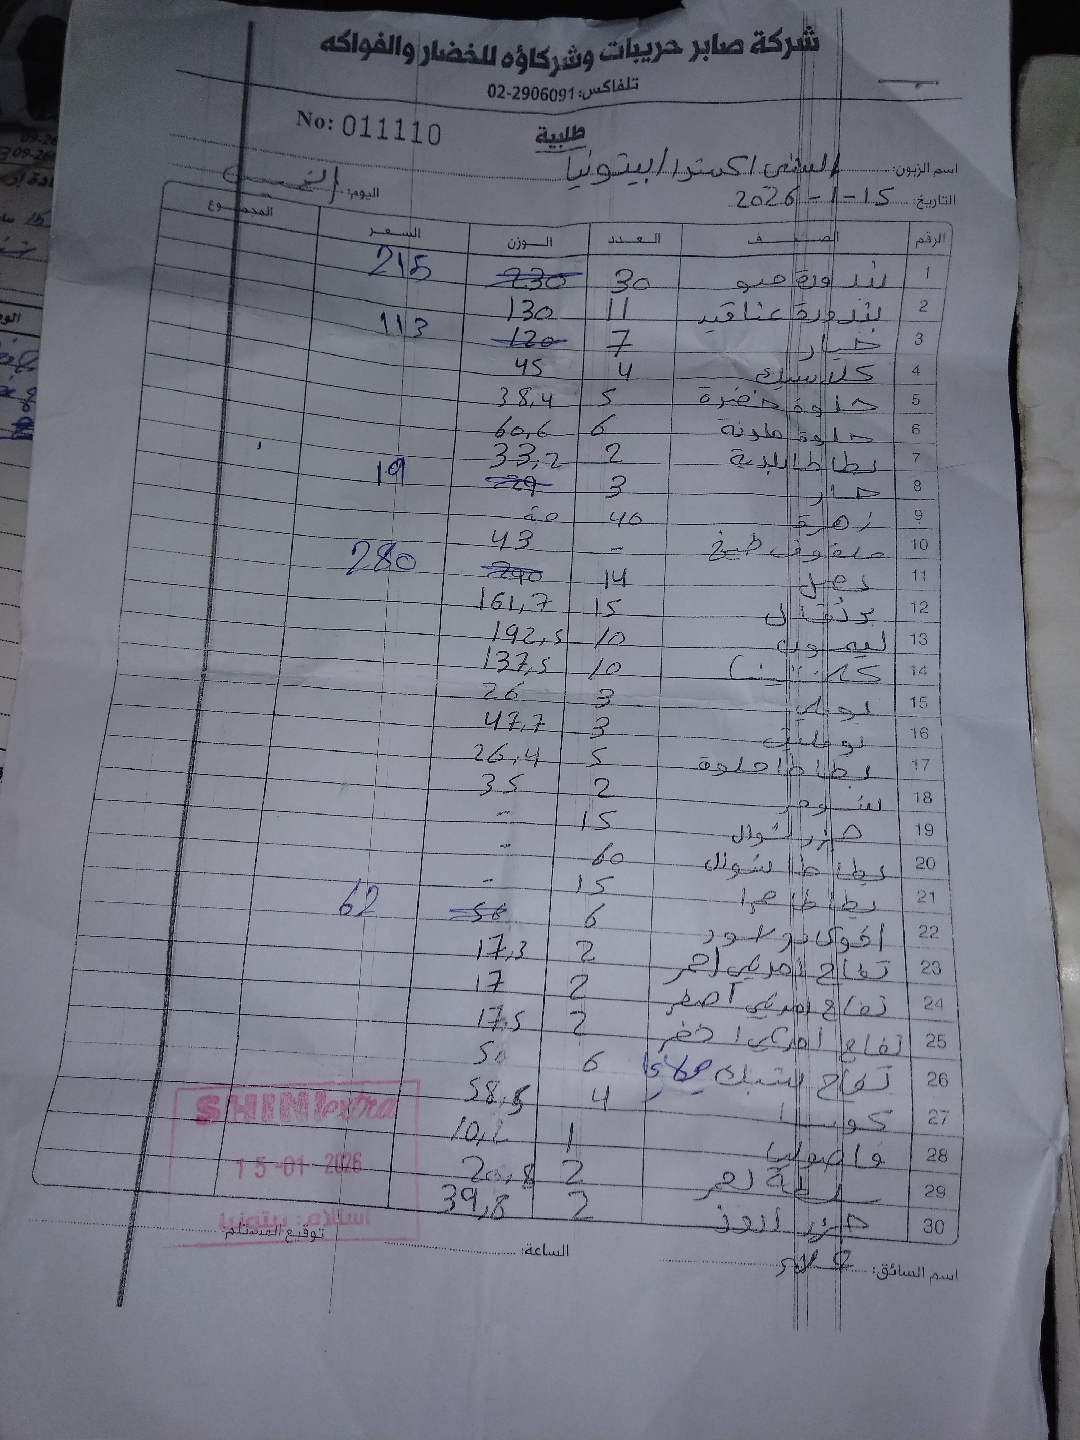 شركة صابر حريبات وشركاؤه للخضار والفواكه
تلفاكس: 02-2906091
No: 011110
طلبية
اسم الزبون: الشني اكسترا / بيتونيا
اليوم: الخميس
التاريخ: 15-1-2026
الرقم الصنف العدد الوزن السعر المجموع
1 بندورة 30 230 215
2 بندورة عناقيد 11 130
3 خيار 7 120 113
4 كلاسيك 4 45
5 حلوة خضرة 5 38,4
6 حلوة ملونة 6 60,6
7 بطاطا بلدية 2 33,2
8 حار 3 19
9 زهرة 40
10 ملفوف طبخ - 43
11 بصل 14 290 280
12 برتقال 15 161,7
13 ليمون 10 192,5
14 10 137,5
15 3 26
16 3 47,7
17 بطاطا حلوة 5 26,4
18 شومر 2 35
19 جزر شوال 15 -
20 بطاطا شوال 60 -
21 بطاطا حمرا 15 -
22 6 62
23 تفاح امريكي احمر 2 17,3
24 تفاح امريكي اصفر 2 17
25 تفاح امريكي اخضر 2 17,5
26 تفاح 6 50
27 كوسا 4 58,5
28 فاصوليا 1
29 احمر 2 20,8
30 جزر 2 39,8
SHINI extra
15-01-2026
استلام: بيتونيا
توقيع المستلم:
الساعة:
اسم السائق: